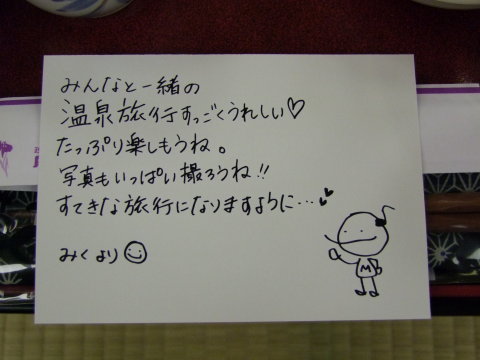 みんなと一緒の
温泉旅行すっごくうれしい♡
たっぷり楽しもうね。
写真もいっぱい撮ろうね!!
すてきな旅行になりますように…♥
みくより☺
M